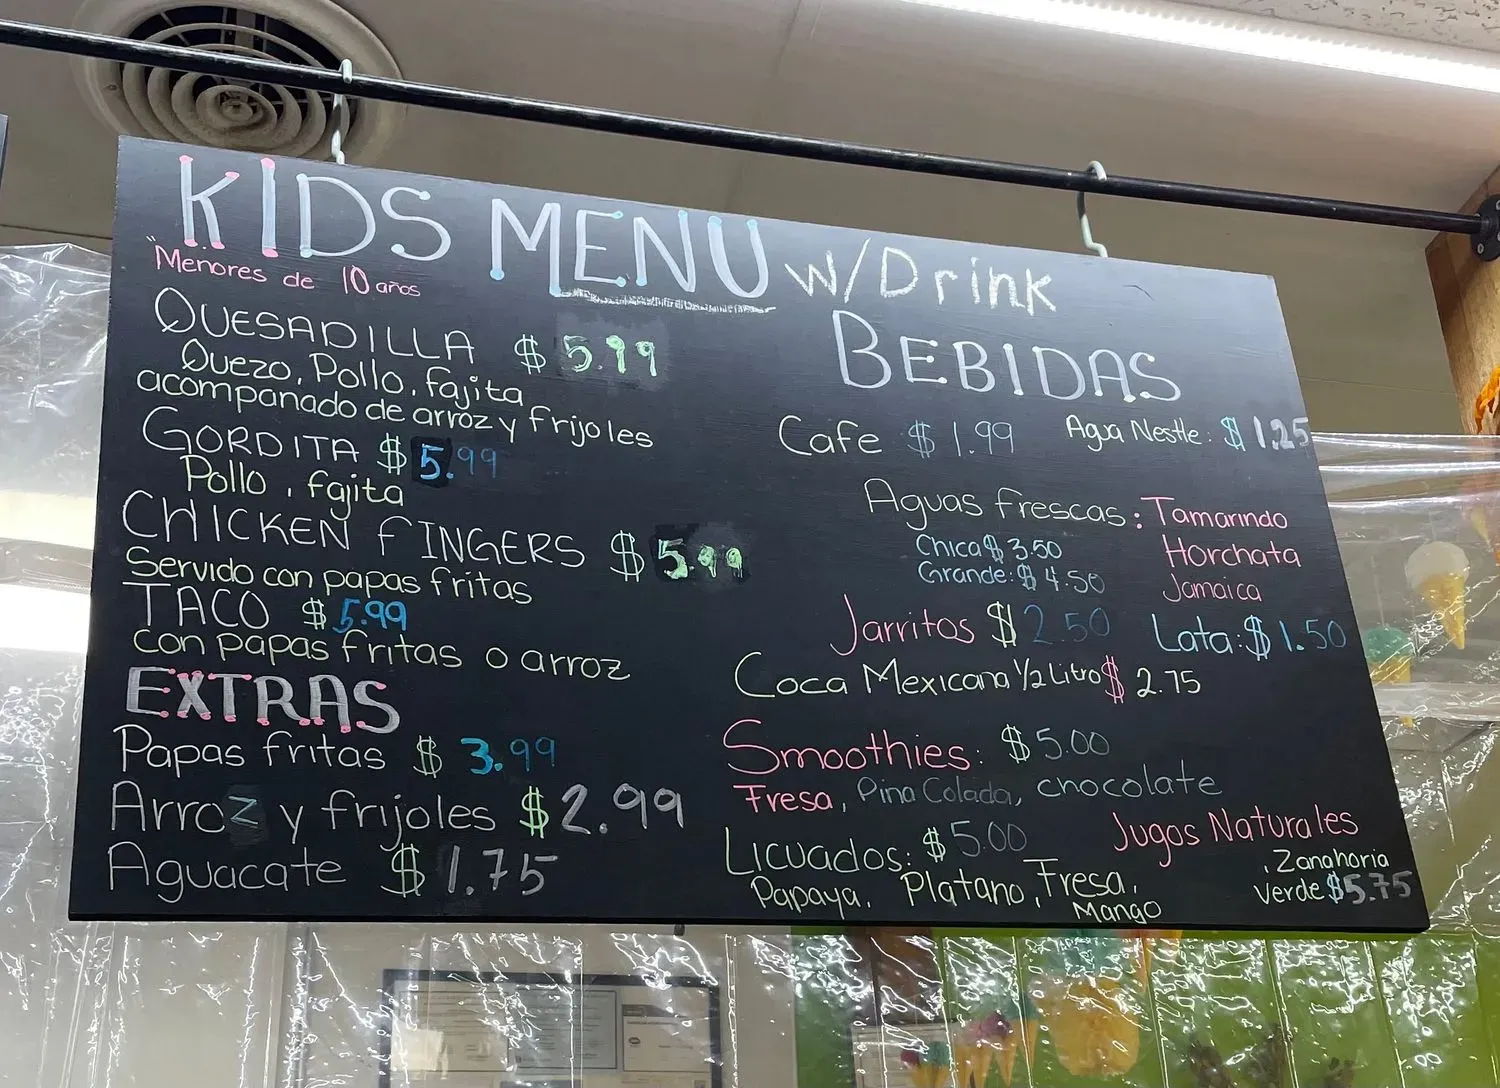 KIDS MENU w/Drink
"Menores de 10 años
QUESADILLA $5.99
Quezo, Pollo, fajita
acompañado de arroz y frijoles
GORDITA $5.99
Pollo, fajita
CHICKEN fINGERS $5.99
Servido con papas fritas
TACO $5.99
con papas fritas o arroz
EXTRAS
Papas fritas $3.99
Arroz y frijoles $2.99
Aguacate $1.75
BEBIDAS
Cafe $1.99 Agua Nestle: $1.25
Aguas frescas: Tamarindo
Chica $3.50 Horchata
Grande: $4.50 Jamaica
Jarritos $2.50 Lata: $1.50
Coca Mexicana 1/2 Litro $2.75
Smoothies: $5.00
Fresa, Pina Colada, chocolate
Licuados: $5.00
Papaya, Platano, Fresa,
Mango
Jugos Naturales
, Zanahoria
Verde $5.75